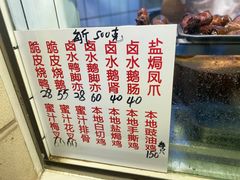 斤 500克
脆皮烧鸭 28
脆皮烧鹅 55
卤水鸭脚亦 28
卤水鹅脚亦 60
卤水鹅肾 40
卤水鹅肠 40
盐焗凤爪
蜜汁梅叉
蜜汁花叉
蜜汁排骨
本地白切鸡
本地盐焗鸡
本地手撕鸡
本地豉油鸡 150